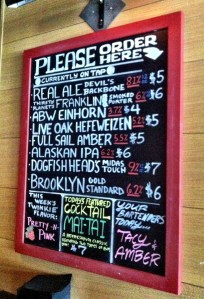 PLEASE ORDER HERE
CURRENTLY ON TAP
REAL ALE DEVIL'S BACKBONE $5
THIRSTY PLANET'S FRANKLIN SMOKED PORTER $6
ABW EINHORN $4
LIVE OAK HEFEWEIZEN $5
FULL SAIL AMBER $5
ALASKAN IPA $6
DOGFISHHEADS MIDAS TOUCH $7
BROOKLYN GOLD STANDARD $6
THIS WEEK'S TWINKIE FLAVOR!
PRETTY-N-PINK
TODAYS FEATURED COCKTAIL
MAI-TAI
A REFRESHING CLASSIC
$7
YOUR BARTENDERS TODAY...
TACY & AMBER